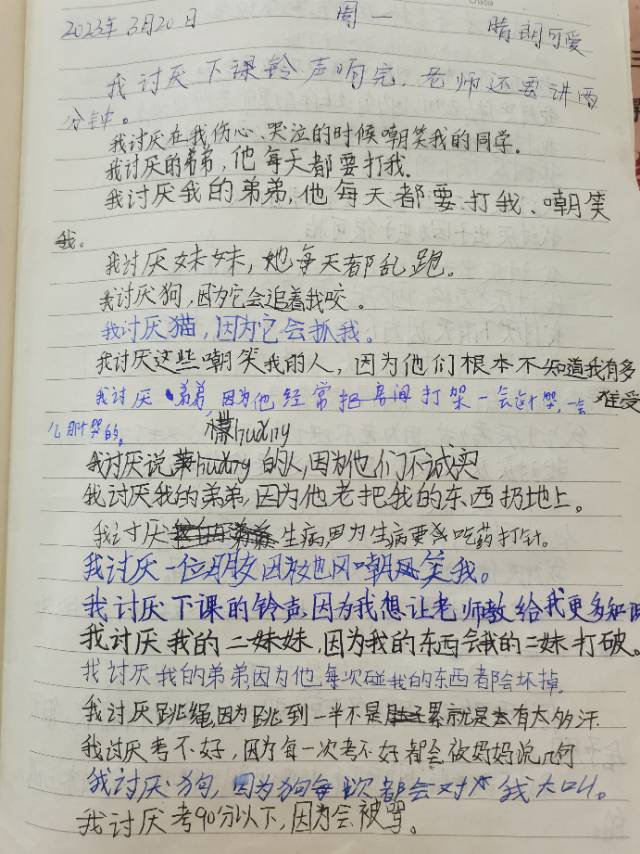 2023年3月20日 周一 晴朗可爱
我讨厌下课铃声响完,老师还要讲两
分钟。
我讨厌在我伤心、哭泣的时候嘲笑我的同学.
我讨厌的弟弟,他每天都要打我.
我讨厌我的弟弟,他每天都要打我、嘲笑
我。
我讨厌妹妹,她每天都乱跑。
我讨厌狗,因为它会追着我咬。
我讨厌猫,因为它会抓我。
我讨厌这些嘲笑我的人,因为他们根本不知道我有多
难受
我讨厌弟弟因为他经常把房间打架一会这哭,一会
儿那哭的。
huǎng
我讨厌说huǎng的人,因为他们不诚实
我讨厌我的弟弟,因为他老把我的东西扔地上。
我讨厌生病,因为生病要我吃药打针。
我讨厌一位朋友因为她嘲笑我。
我讨厌下课的铃声,因为我想让老师教给我更多知识
我讨厌我的二妹妹,因为我的东西会我的二妹打破。
我讨厌我的弟弟,因为他每次碰我的东西都会坏掉.
我讨厌跳绳,因为跳到一半不是累就是有太多汗
我讨厌考不好,因为每一次考不好都会被妈妈说几句
我讨厌狗,因为狗每次都会对我大叫。
我讨厌考90分以下,因为会被骂。